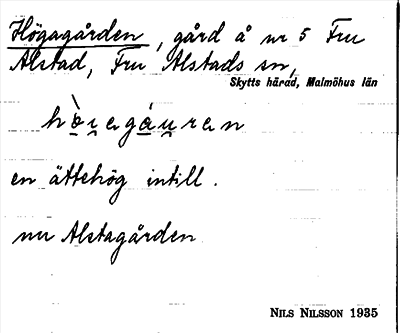 Högagården, gård å nr 5 Fru
Alstad, Fru Alstads sn,
Skytts härad, Malmöhus län
hò̤i̯agá̱u̯ran
en ättehög intill.
nu Alstagården
NILS NILSSON 1935